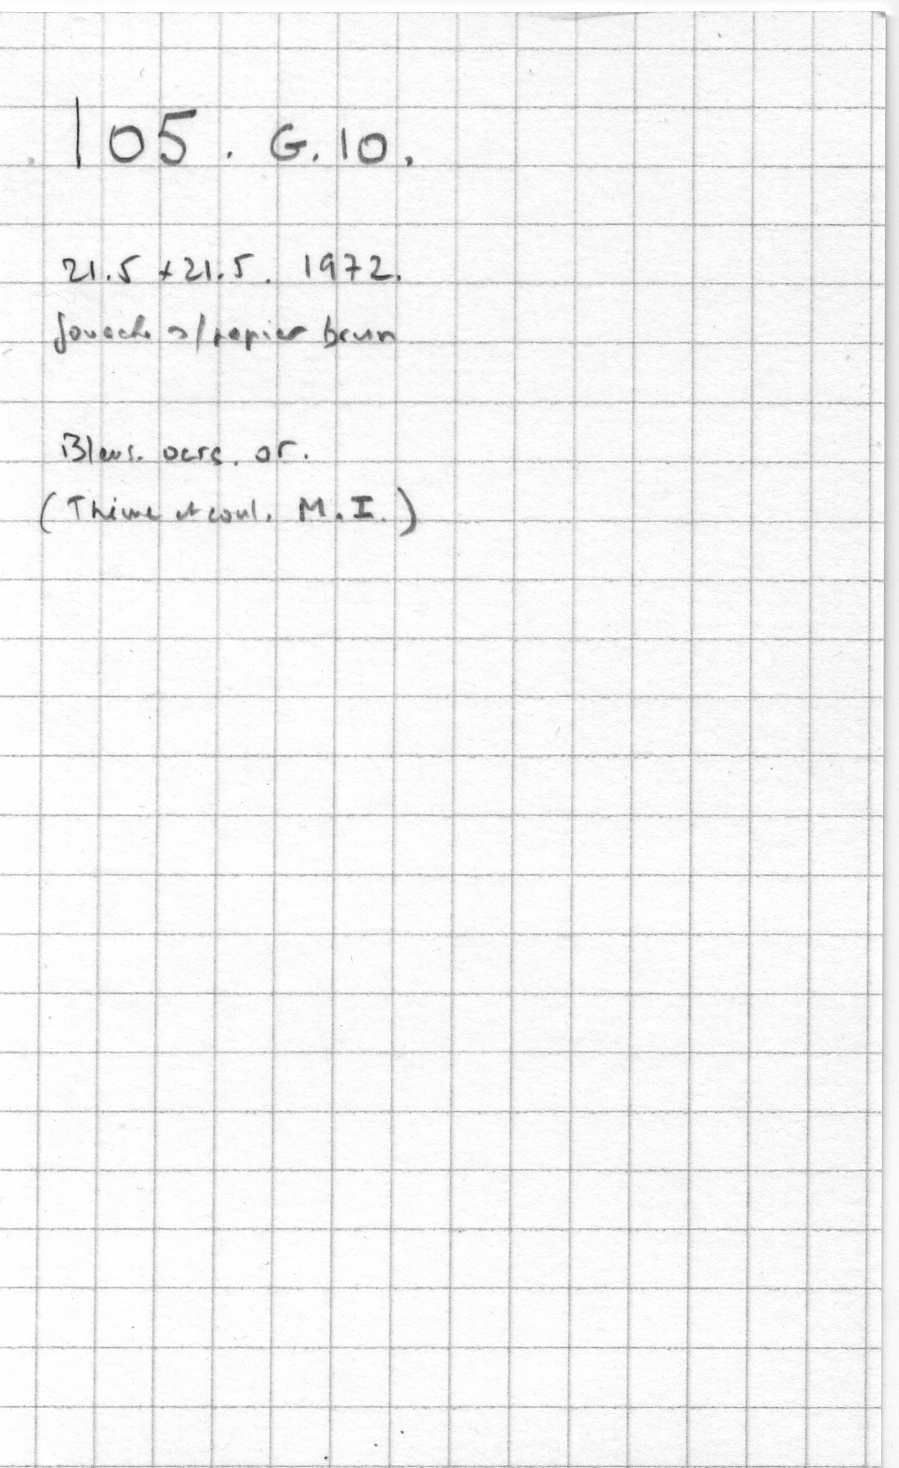 105. G.10.
21.5 x 21.5. 1972.
gouache s/papier brun
Bleus. ocre. or.
(Thème et coul. M.I.)